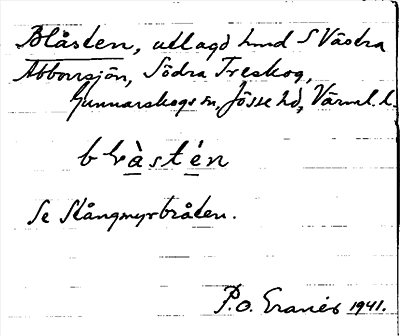 Blåsten, utlagd hmd S Västra
Abborrsjön, Södra Treskog,
Gunnarskogs sn, Jösse hd, Värml. l.
blàstén
Se Stångmyrbråten.
P.O. Granér 1941.